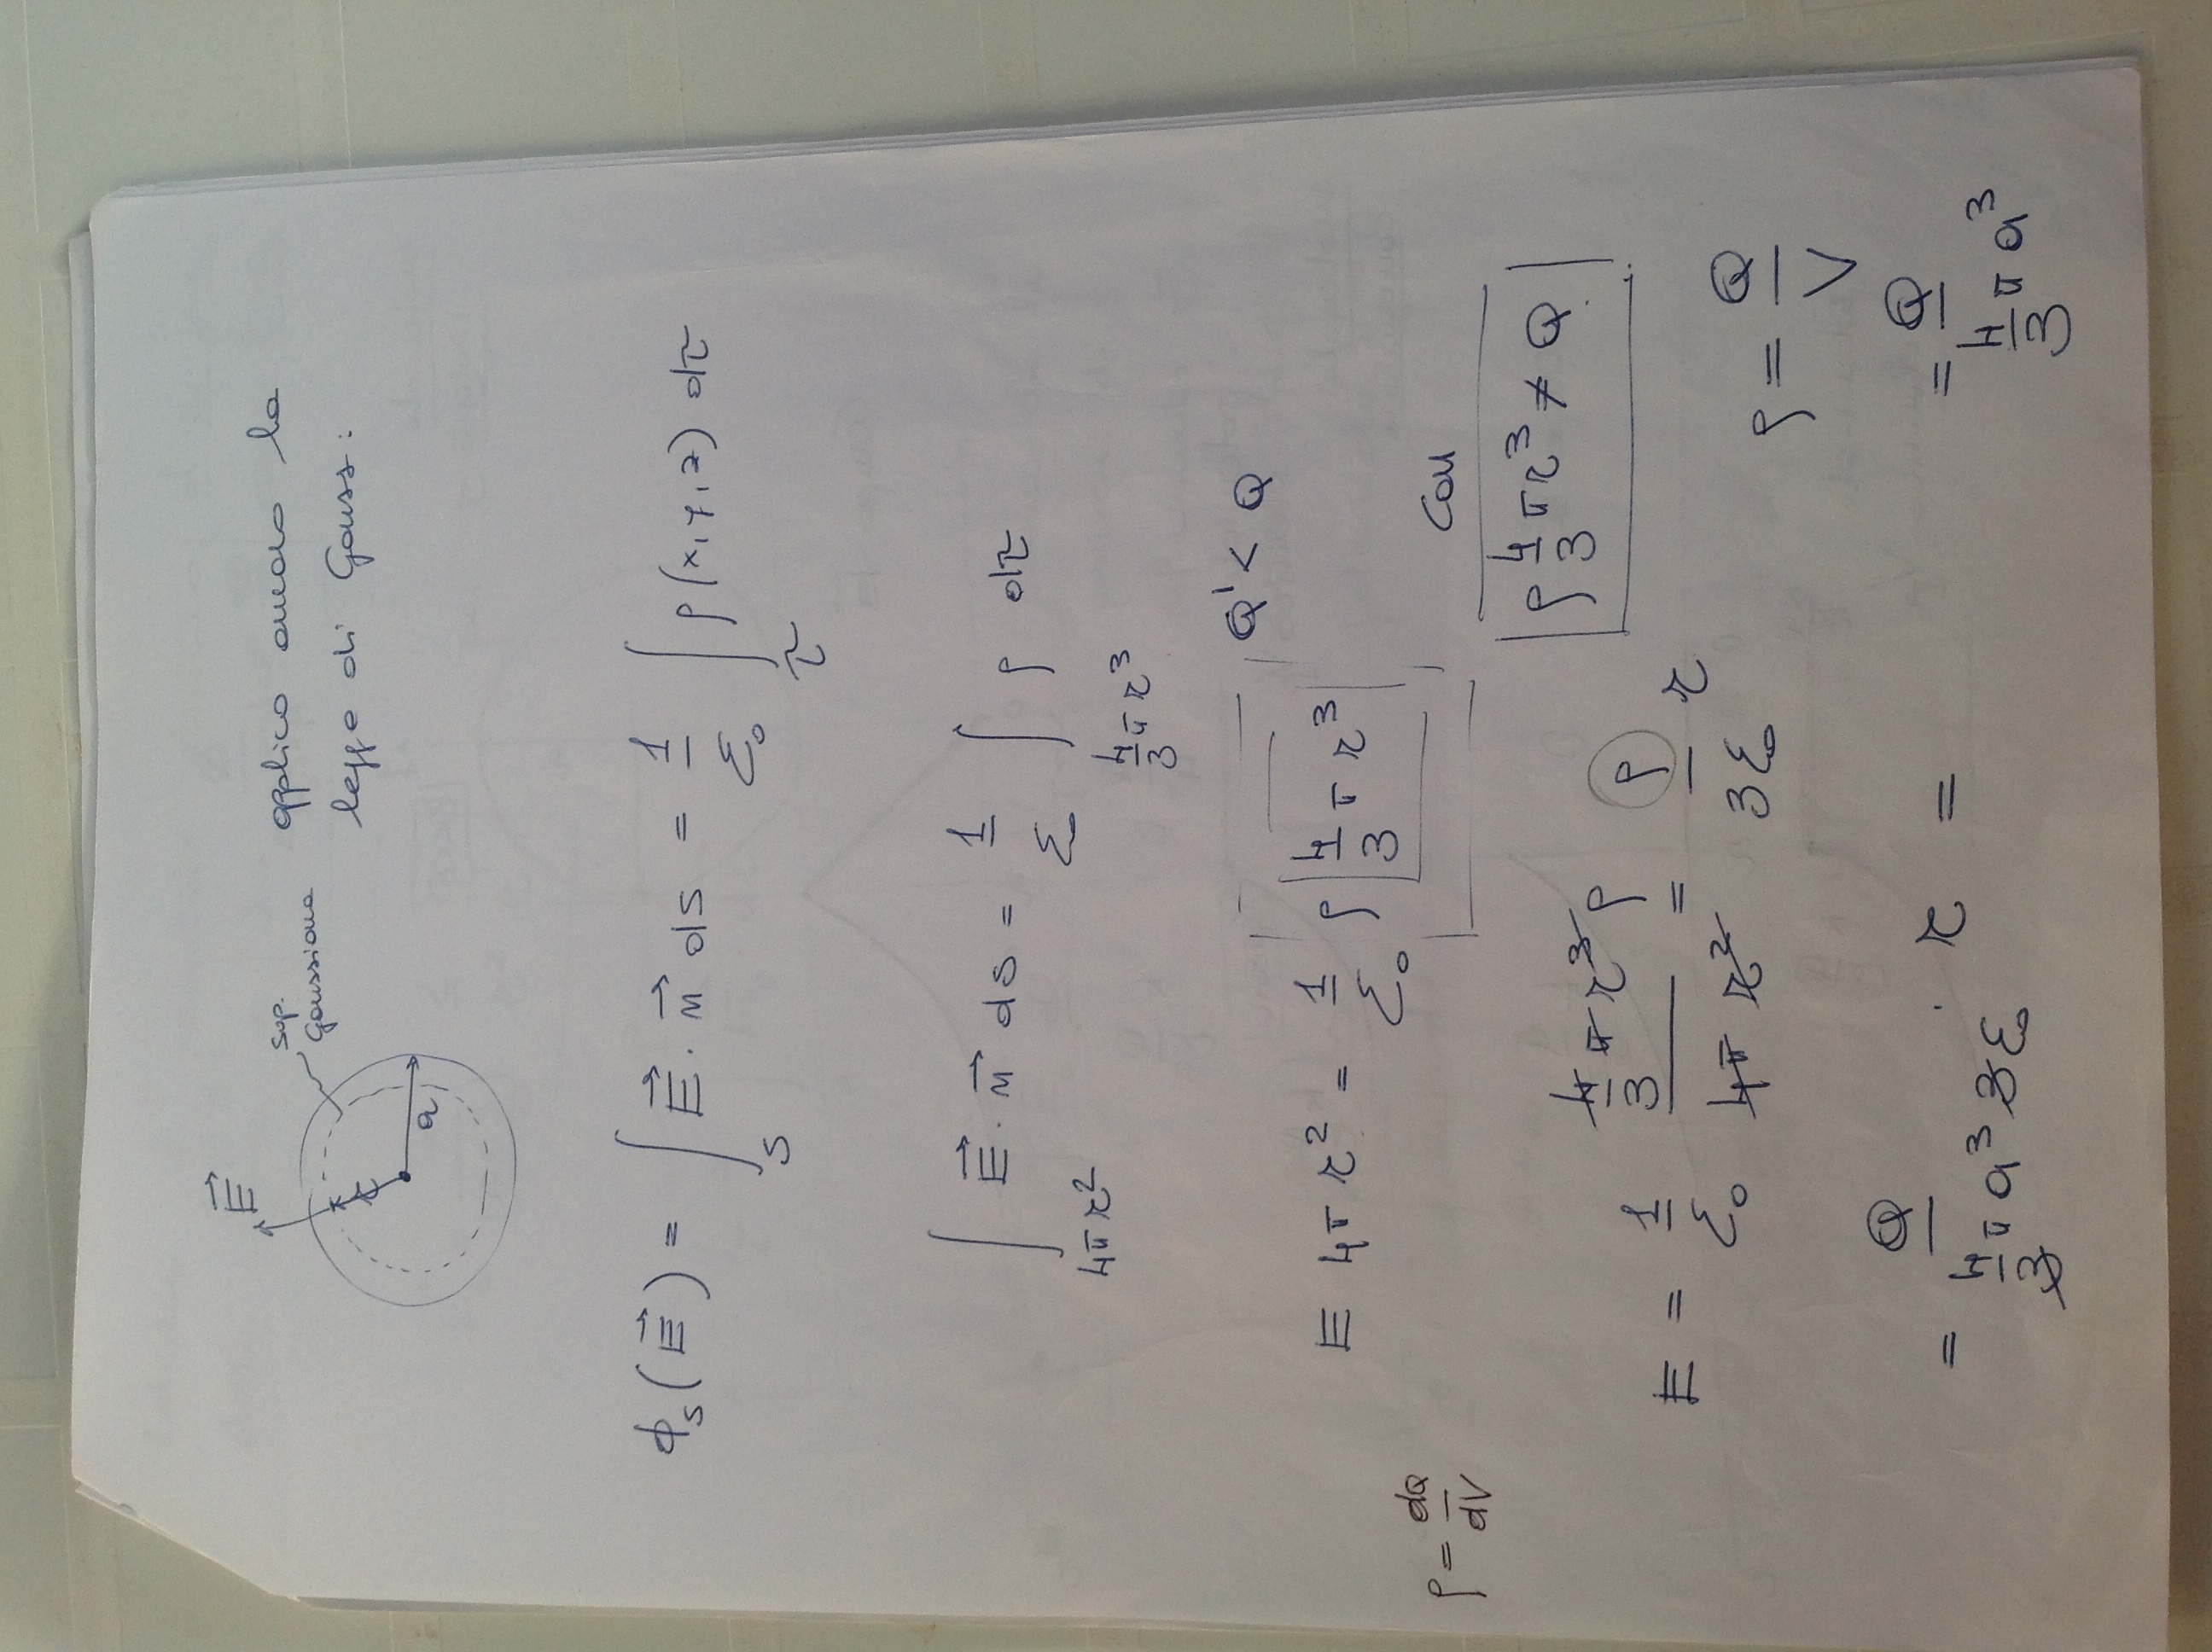 E⃗
sup.
Gaussiana
r
a
applico ancora la
legge di Gauss:
ϕₛ(E⃗) = ∫_S E⃗ · n⃗ dS = 1/ε₀ ∫_τ ρ(x,y,z) dτ
∫_{4πr²} E⃗ · n⃗ dS = 1/ε₀ ∫_{4/3 πr³} ρ dτ
Q' < Q
E 4πr² = 1/ε₀ ρ 4/3 πr³
ρ = dQ/dV
con
ρ 4/3 πr³ ≠ Q
E = 1/ε₀ (4/3 πr³ρ)/(4πr²) = ρ/3ε₀ r
ρ = Q/V
= Q/(4/3 πa³ 3ε₀) · r =
= Q/(4/3 πa³)